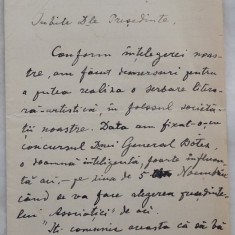 Iubite Dle Președinte.
Conform înțelegerei noas-
tre, am făcut demersuri pentru
a putea realiza o serbare litera-
ră-artistică, în folosul societă-
ții noastre. Data am fixat-o, cu
concursul Dnei General Botez,
o doamnă inteligentă, foarte influen-
tă aci, - pe ziua de 5 Noembrie
când se va face alegerea președinte-
lui "Asociației" de aci.
Vă comunic aceasta că vă